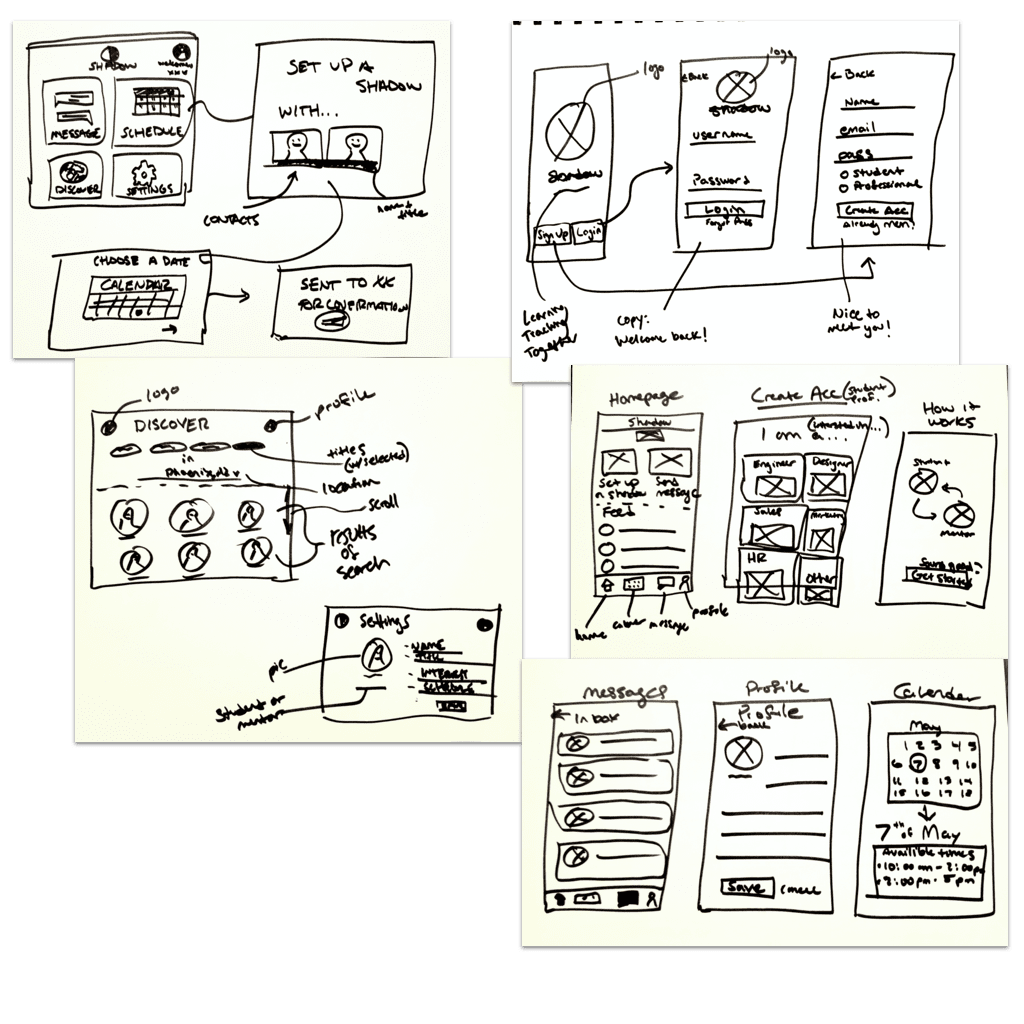 SHADOW
welcome
xxx
MESSAGE
SCHEDULE
DISCOVER
SETTINGS
SET UP A
SHADOW
WITH...
CONTACTS
name +
title
CHOOSE A DATE
CALENDAR
SENT TO XX
FOR COVERMATION
logo
Shadow
Sign Up
Login
Learning
Teaching
Together
logo
Back
SHADOW
username
Password
Login
Forgot Pass
copy:
Welcome back!
Back
Name
email
pass
Student
Professional
Create Acc
Already mem?
Nice to
meet you!
logo
profile
DISCOVER
in
Phoenix, AZ
titles
(w/selected)
location
scroll
results
of
search
Settings
NAME
TITLE
INTEREST
pic
Student or
mentor
Homepage
Shadow
Set up
a shadow
Send
message
Feed
home
message
profile
Create Acc (student
prof.
(interested in...)
I am a...
Engineer
Designer
Sales
Marketing
HR
Other
How it
works
Student
Mentor
Sounds good?
Get Started
Messages
Inbox
Profile
Profile
back
Save
Calender
May
1 2 3 4 5
6 7 8 9 10
11 12 13 14
15 16 17 18
7th of May
Availible times
10:00 am - 2:00pm
3:00pm - 5pm